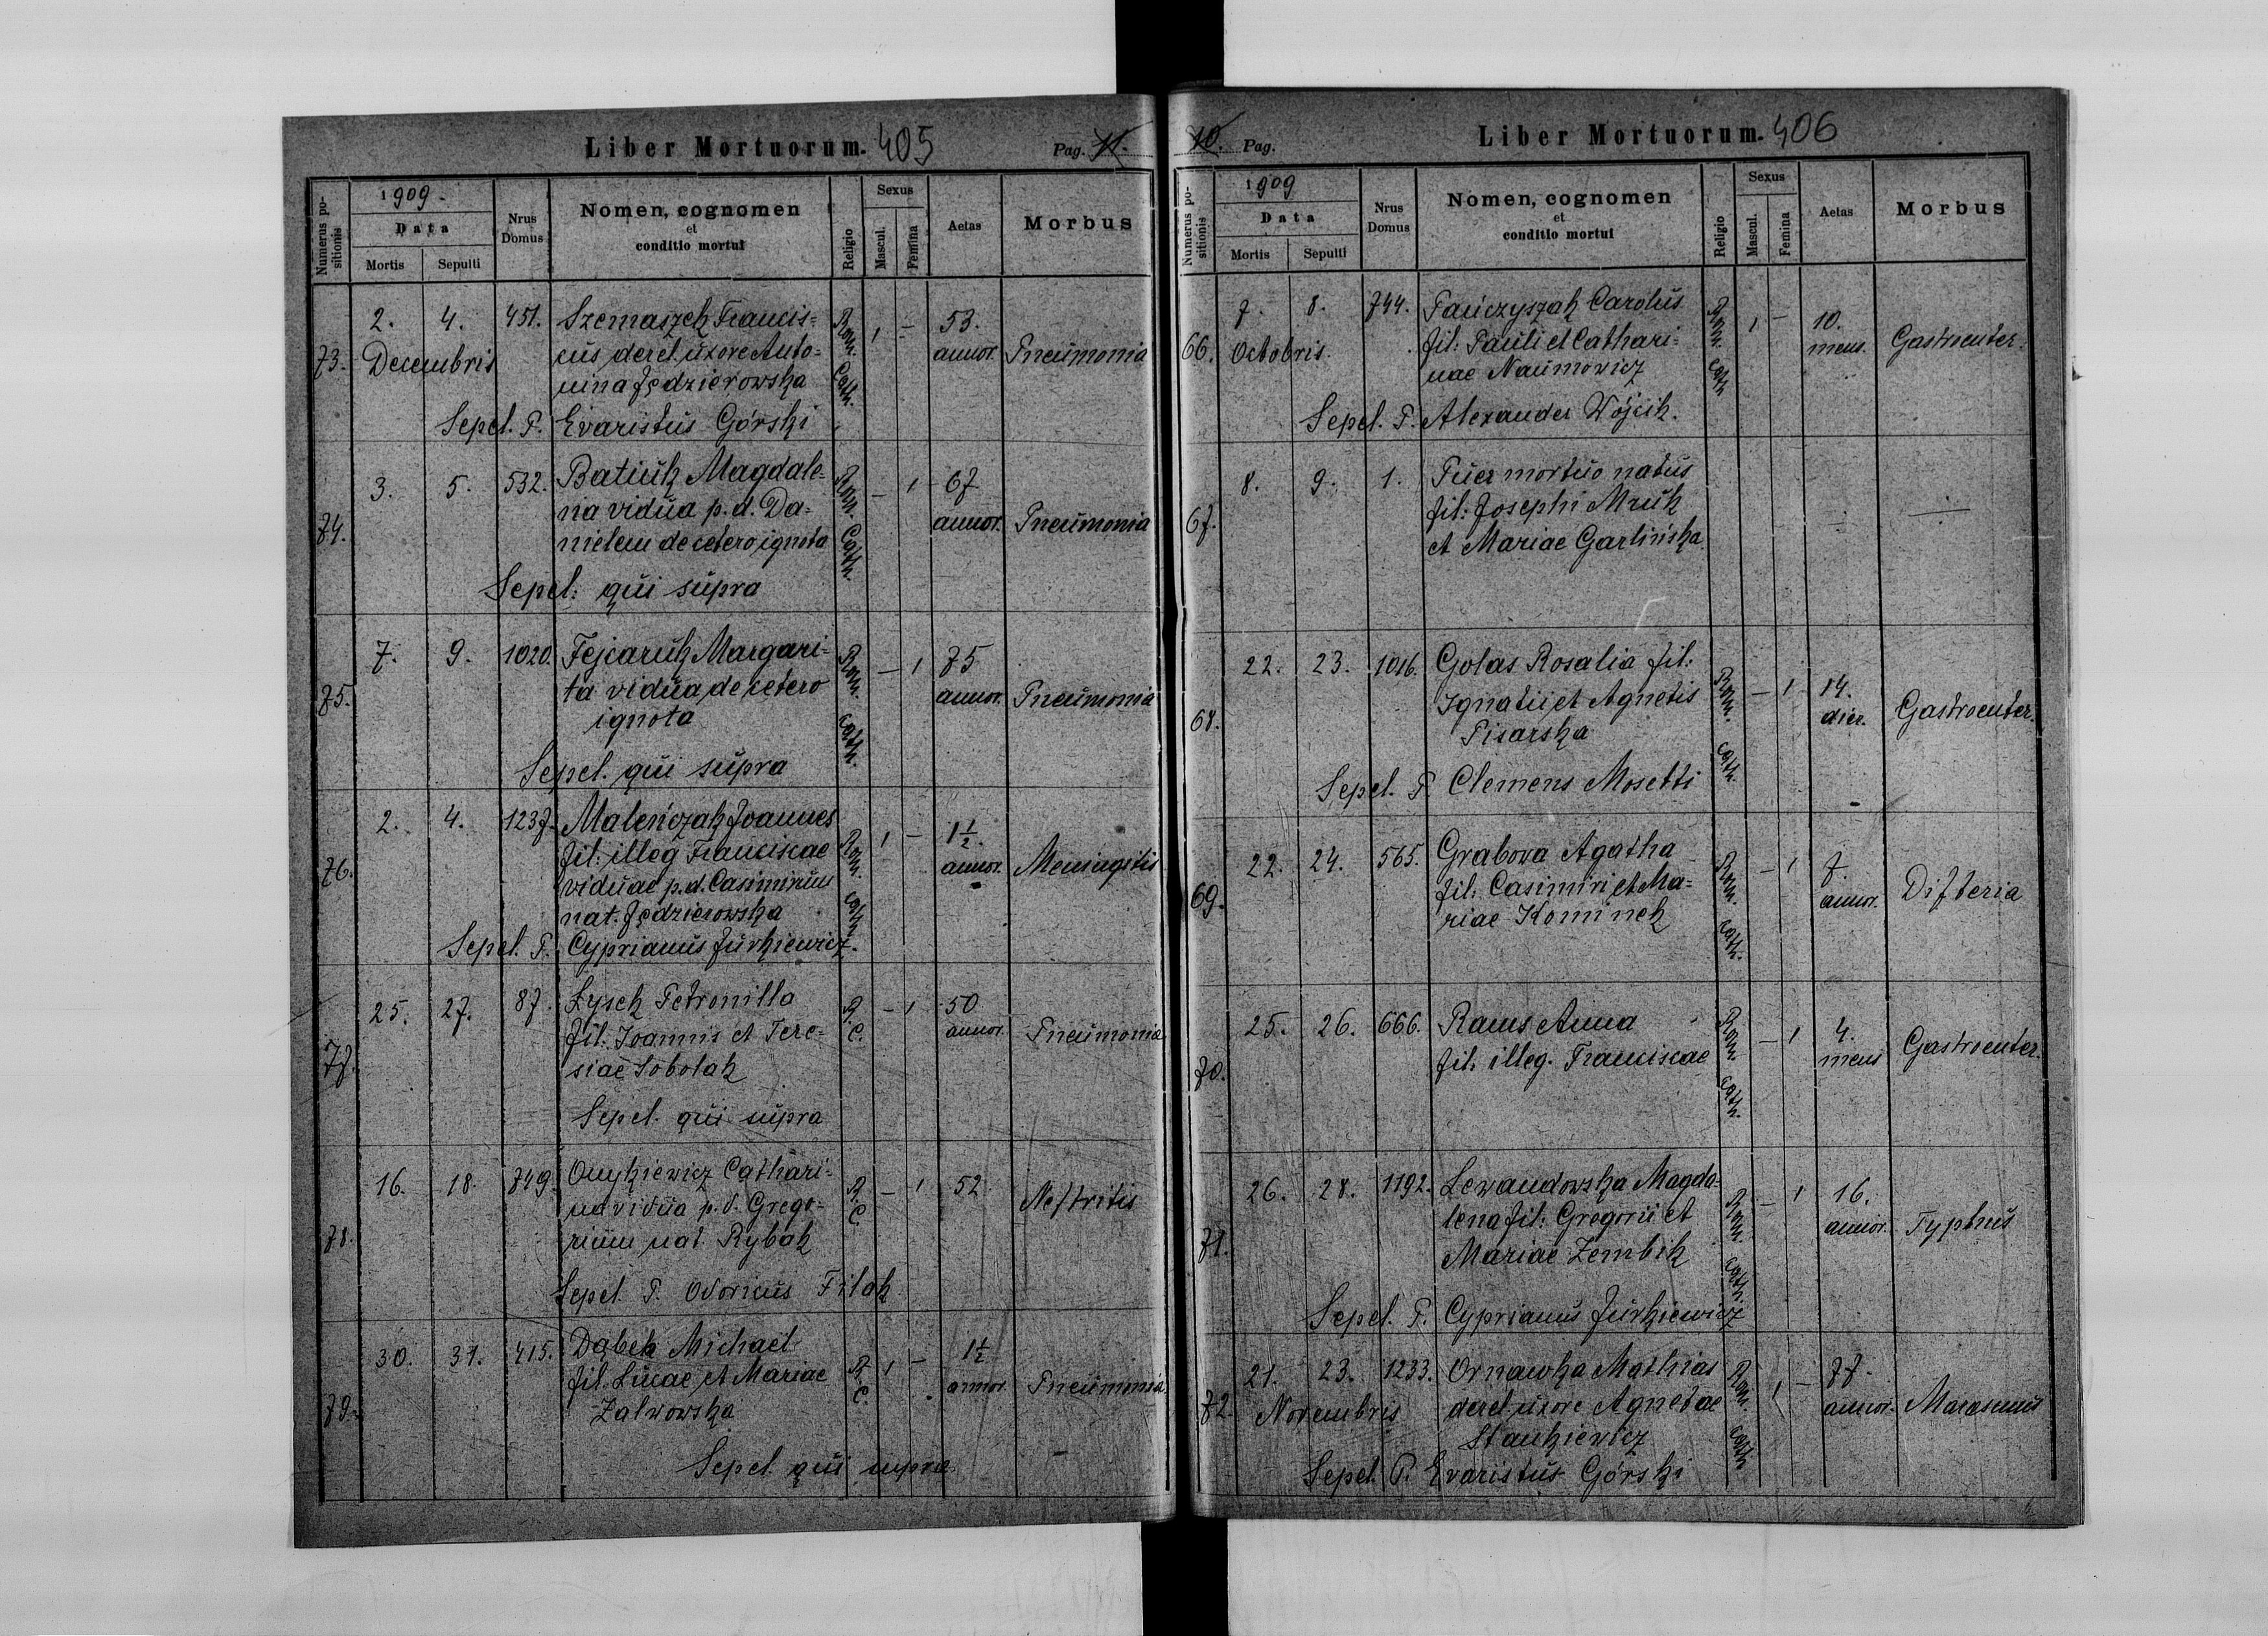 Liber Mortuorum. 405
Pag. 11.
Numerus positionis
1909.
Data
Mortis
Sepulti
Nrus Domus
Nomen, cognomen
et
conditio mortui
Religio
Sexus
Mascul.
Femina
Aetas
Morbus
73. 2. 4. 451. Szemaszek Francis= Rom. 1 - 53.
Decembris cus derel. uxore Anto= Cath. annor. Pneumonia
nina Jędzierowska
Sepel. P. Evaristus Górski
74. 3. 5. 532. Batiuk Magdale= Rom. - 1 67
na vidua p. d. Da= Cath. annor. Pneumonia
nielem de cetero ignota
Sepel: qui supra
75. 7. 9. 1020. Fejcaruk Margari= Rom. - 1 75
ta vidua de cetero Cath. annor. Pneumonia
ignota
Sepel. qui supra
76. 2. 4. 1237. Maleńczak Joannes Rom. 1 - 1½
fil: illeg Franciscae Cath. annor. Meningitis
viduae p. d. Casimirum
nat. Jędzierowska
Sepel. P. Cyprianus Jurkiewicz.
77. 25. 27. 87. Łysek Petronilla R. - 1 50
fil: Joannis et Tere= C. annor. Pneumonia
siae Sobolak
Sepel. qui supra
78. 16. 18. 749. Onykiewicz Cathari= R. - 1 52
na vidua p. d. Grego= C. Neftritis
rium nat. Rybak
Sepel. P. Odoricus Filak
79. 30. 31. 415. Dąbek Michael R. 1 - 1½
fil. Lucae et Mariae C. annor. Pneumonia
Zalwowska
Sepel. qui supra
10. Pag.
Liber Mortuorum. 406
Numerus positionis
1909
Data
Mortis
Sepulti
Nrus Domus
Nomen, cognomen
et
conditio mortui
Religio
Sexus
Mascul.
Femina
Aetas
Morbus
66. 7. 8. 744. Pańczyszak Carolus Rom. 1 - 10.
Octobris. fil: Pauli et Cathari= Cath mens. Gastroenter.
nae Naumowicz
Sepel. P. Alexander Wójcik.
67. 8. 9. 1. Puer mortuo natus
fil: Josephi Mruk
et Mariae Garlińska.
68. 22. 23. 1016. Golas Rosalia fil: Rom. - 1 14.
Ignatii et Agnetis Cath. dier. Gastroenter.
Pisarska
Sepel. P Clemens Mosetti
69. 22. 24. 565. Grabova Agatha Rom. - 1 7.
fil: Casimiri et Ma= Cath. annor. Difteria
riae Kominek
70. 25. 26. 666. Rams Anna Rom - 1 4.
fil. illeg. Franciscae Cath. mens Gastroenter.
71. 26. 28. 1192. Lewandowska Magda= Rom - 1 16.
lena fil: Gregorii et Cath. annor. Typhus
Mariae Zembik
Sepel. P. Cyprianus Jurkiewicz
72. 21. 23. 1233. Ornawka Mathias Rom. 1 - 77.
Novembris derel. uxore Agnetae Cath. annor. Marasmus
Stankiewicz
Sepel. P. Evaristus Górski